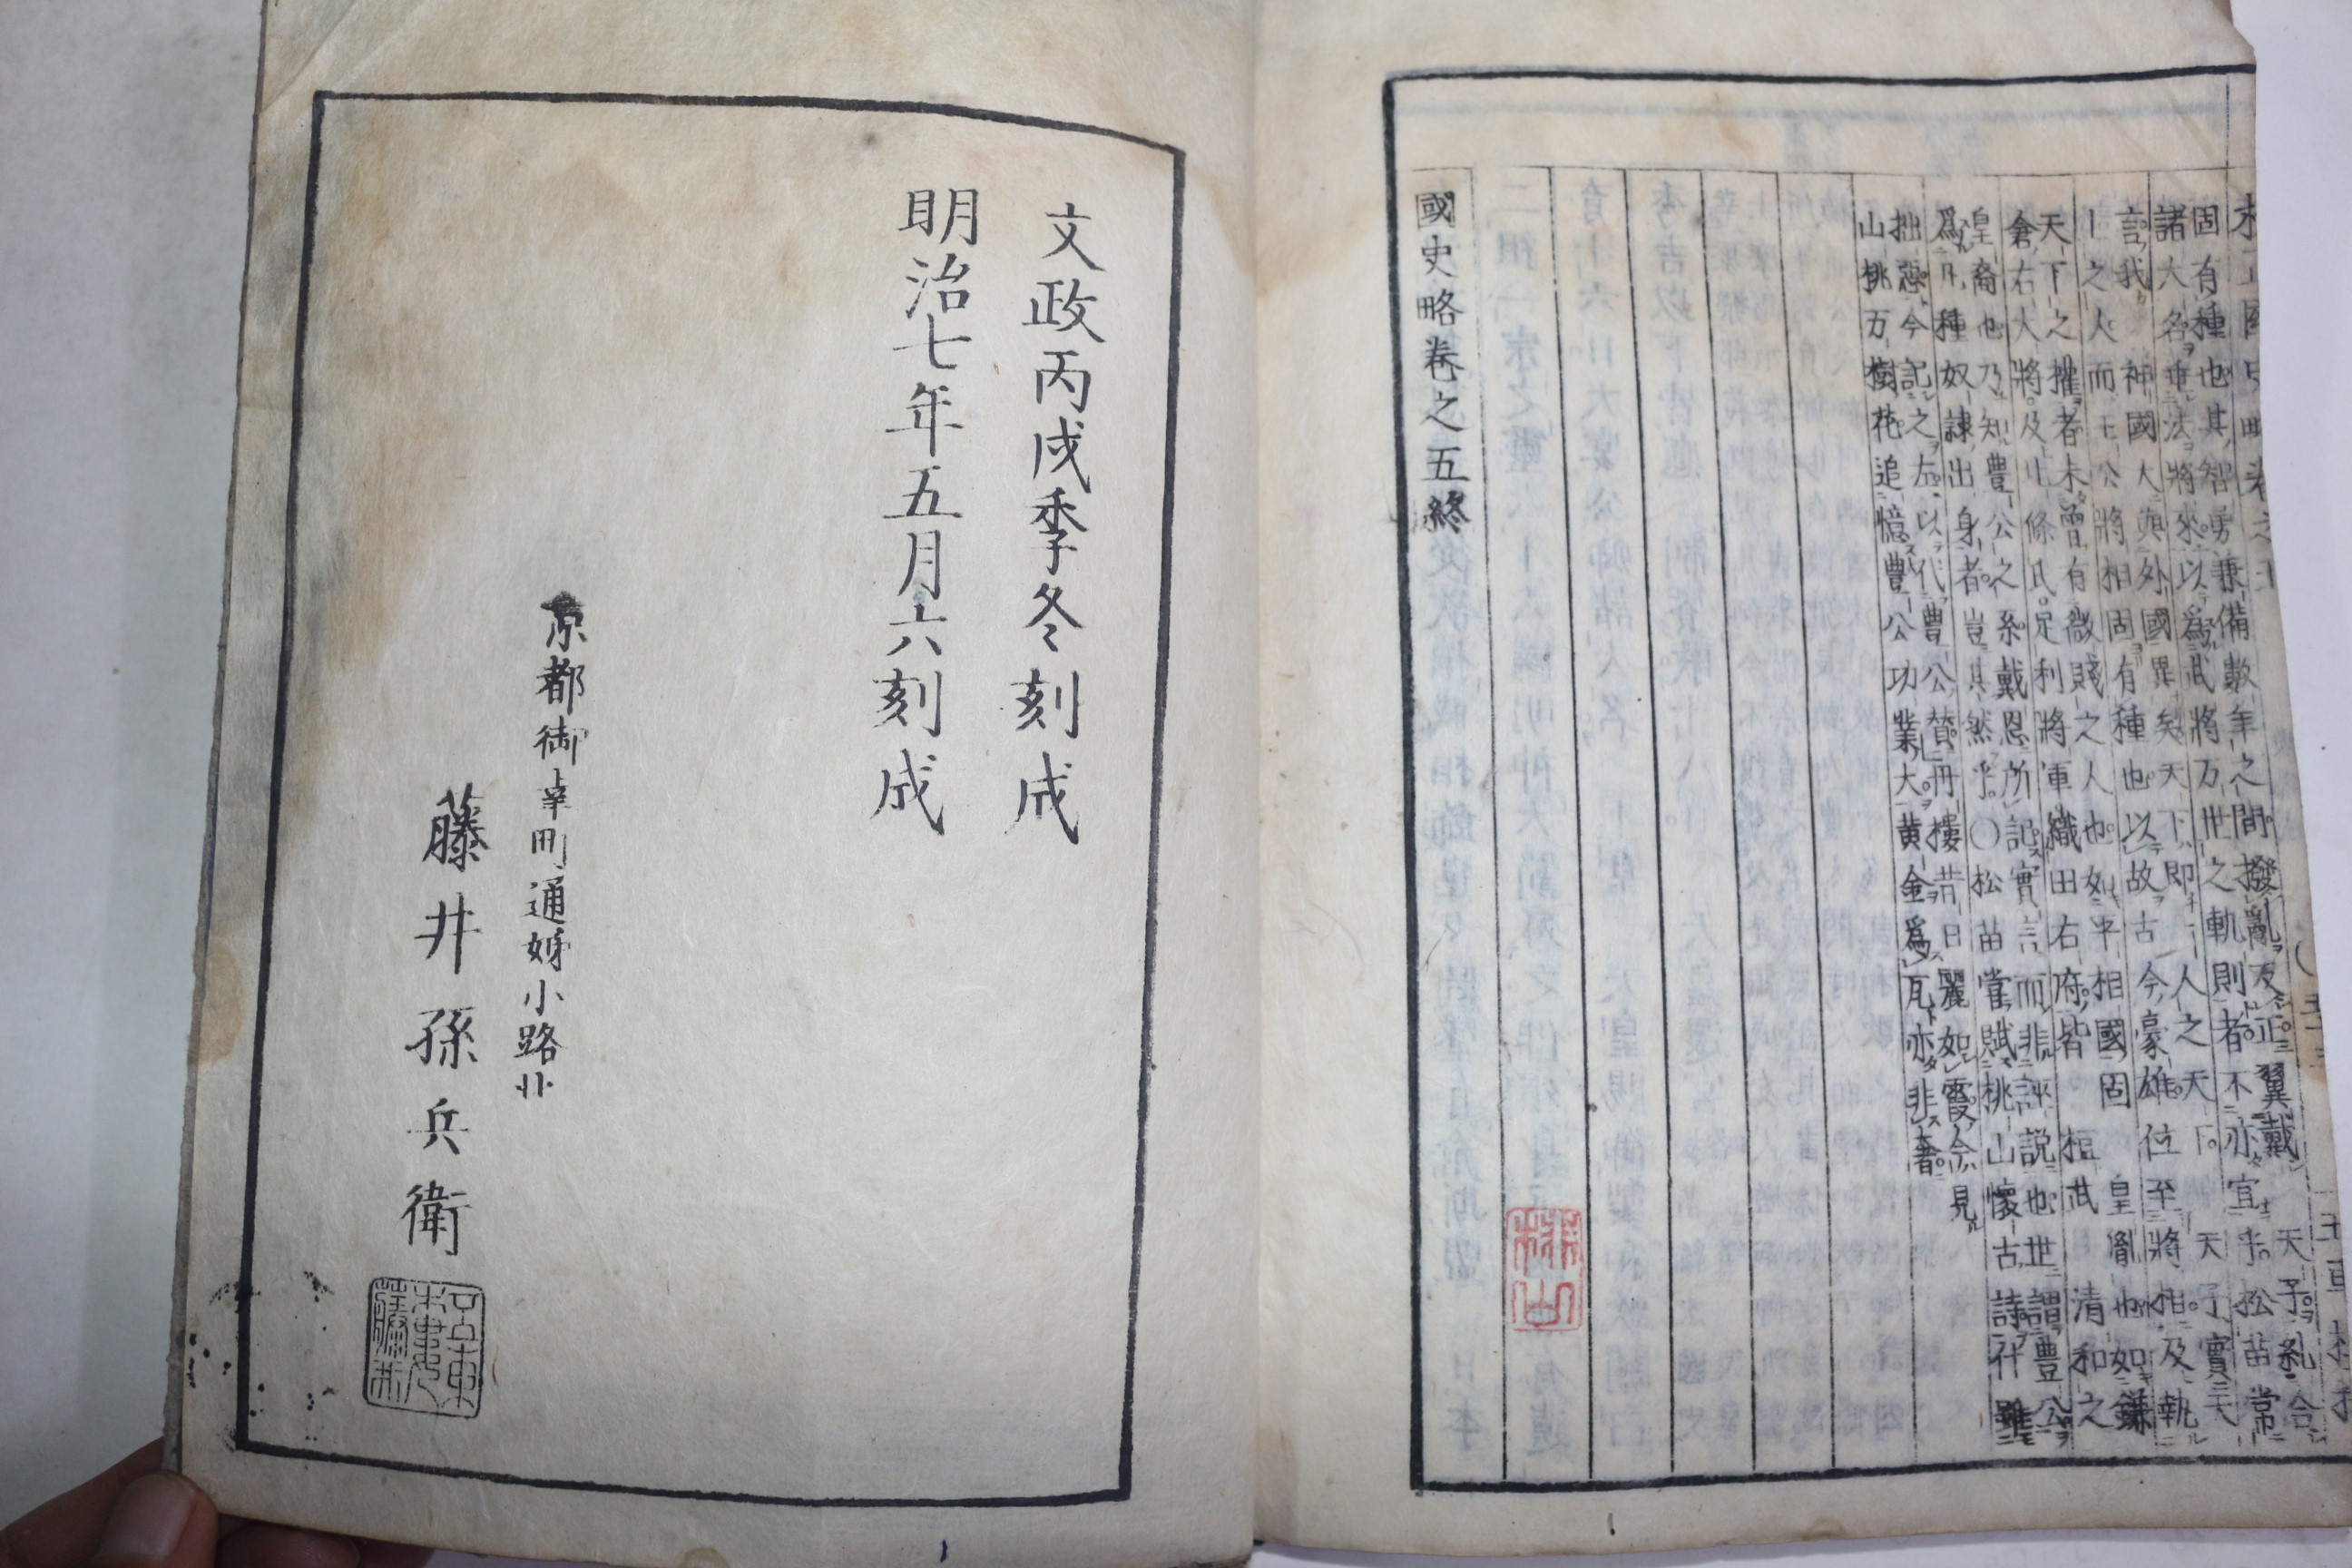 固有種也其智勇兼備數年之間撥亂反正翼戴 天子糺合
諸大名垂法將來以爲武將万世之軌則者不亦宜乎松苗常
言我 神國大與外國異矣天下即一人之天下 天子實天
上之人而王公將相固有種也以故古今豪雄位至將相及執
天下之擢者未曾有微賤之人也如平相國固 皇胤也如鎌
倉右大將及北條氏足利將軍織田右府皆 桓武 清和之
皇裔也乃知豊公之系戴恩所記實言而非評説也世謂豊公
爲凡種奴隷出身者豈其然乎○松苗嘗賦桃山懷古詩什雖
拙惡今記之左以代豊公贊丹樓昔日麗如霞今見
山桃万樹花追憶豊公功業大黄金爲瓦亦非奢
國史略卷之五終
文政丙戌季冬刻成
明治七年五月六刻成
京都御幸町通姉小路北
藤井孫兵衛